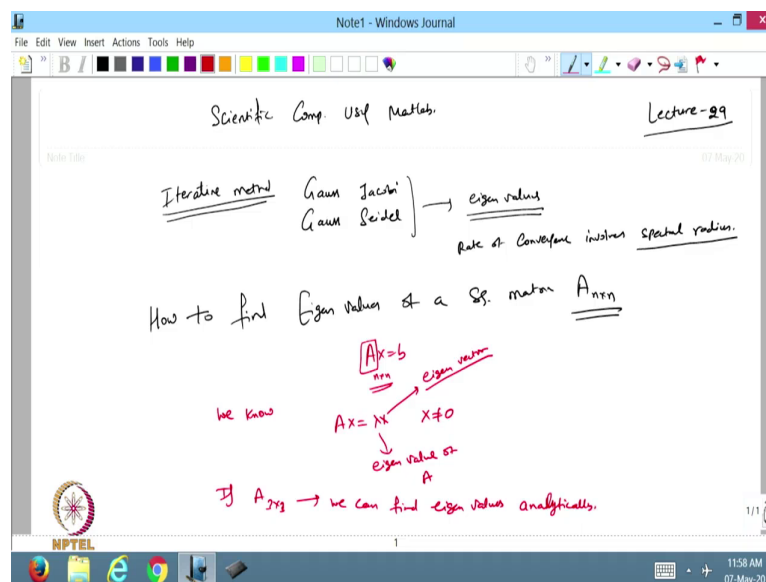 Note1 - Windows Journal
File Edit View Insert Actions Tools Help
Scientific Comp. Usg Matlab.
Lecture-29
Note Title
07 May 20
Iterative method Gauss Jacobi
Gauss Seidel
→ eigen values
Rate of Convergence involves spectral radius.
How to find Eigen values of a Sq. matrix A n×n
Ax=b
n×n
eigen vector
we know Ax=λx x≠0
eigen value of
A
If A 3×3 → we can find eigen values analytically.
NPTEL
1
1/1
11:58 AM
07-May-20